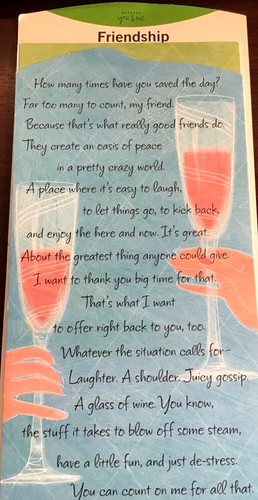 between
you & me
Friendship
How many times have you saved the day?
Far too many to count, my friend.
Because that's what really good friends do.
They create an oasis of peace
in a pretty crazy world.
A place where it's easy to laugh,
to let things go, to kick back,
and enjoy the here and now. It's great.
About the greatest thing anyone could give.
I want to thank you big time for that.
That's what I want
to offer right back to you, too.
Whatever the situation calls for-
Laughter. A shoulder. Juicy gossip.
A glass of wine. You know,
the stuff it takes to blow off some steam,
have a little fun, and just de-stress.
You can count on me for all that.